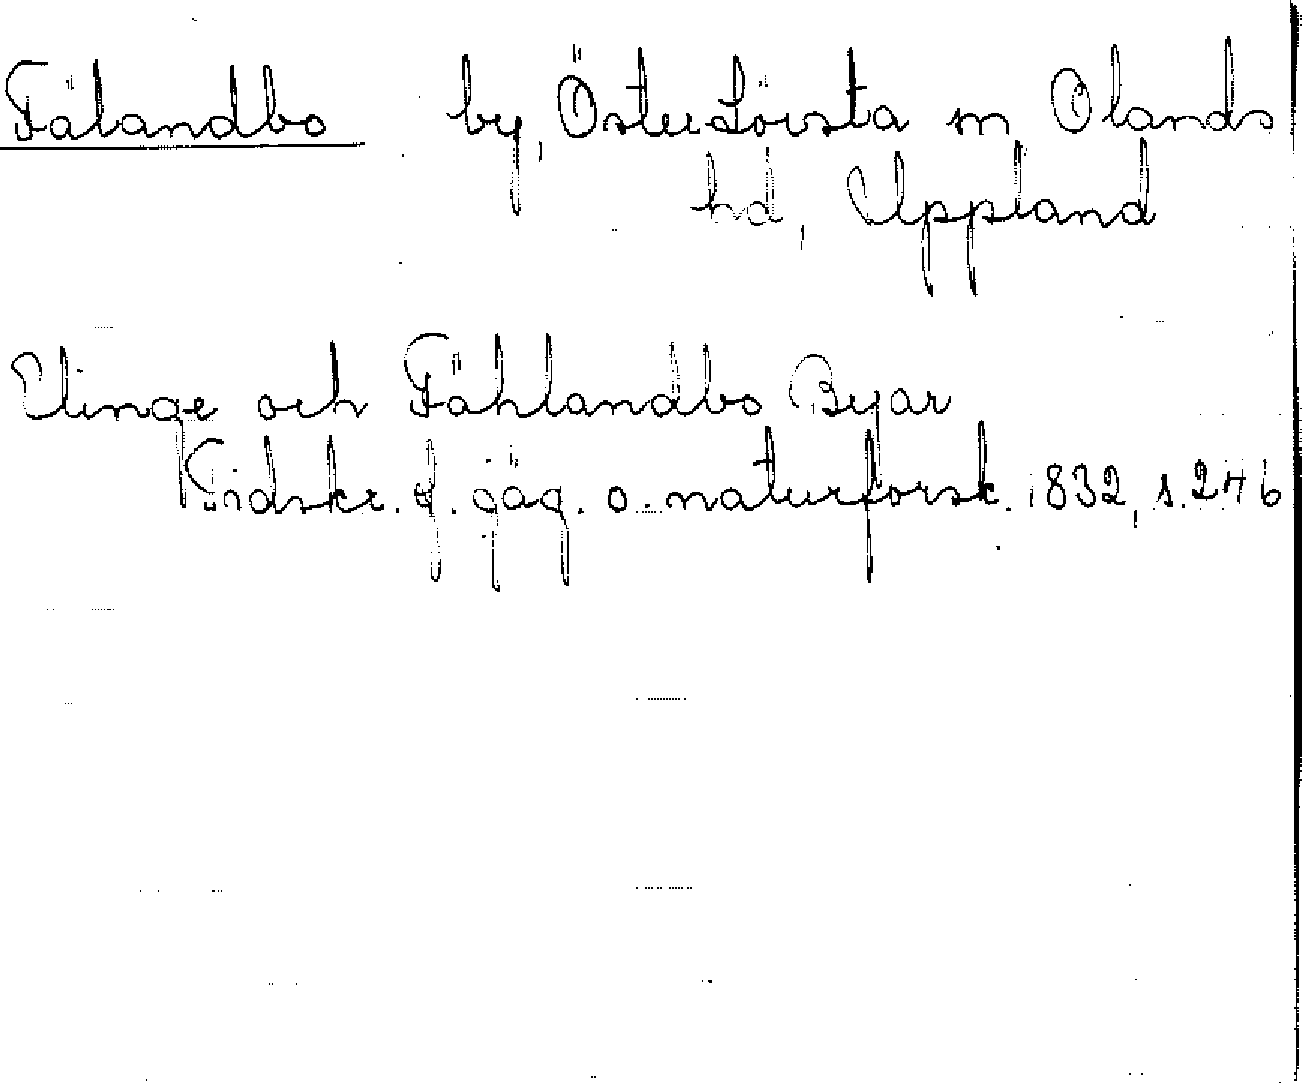 Fälandbo by, Öster-Lövsta sn, Olands
hd, Uppland
Elinge och Fählandbo Byar
Tidskr. f. jäg. o. naturforsk. 1832, s. 246